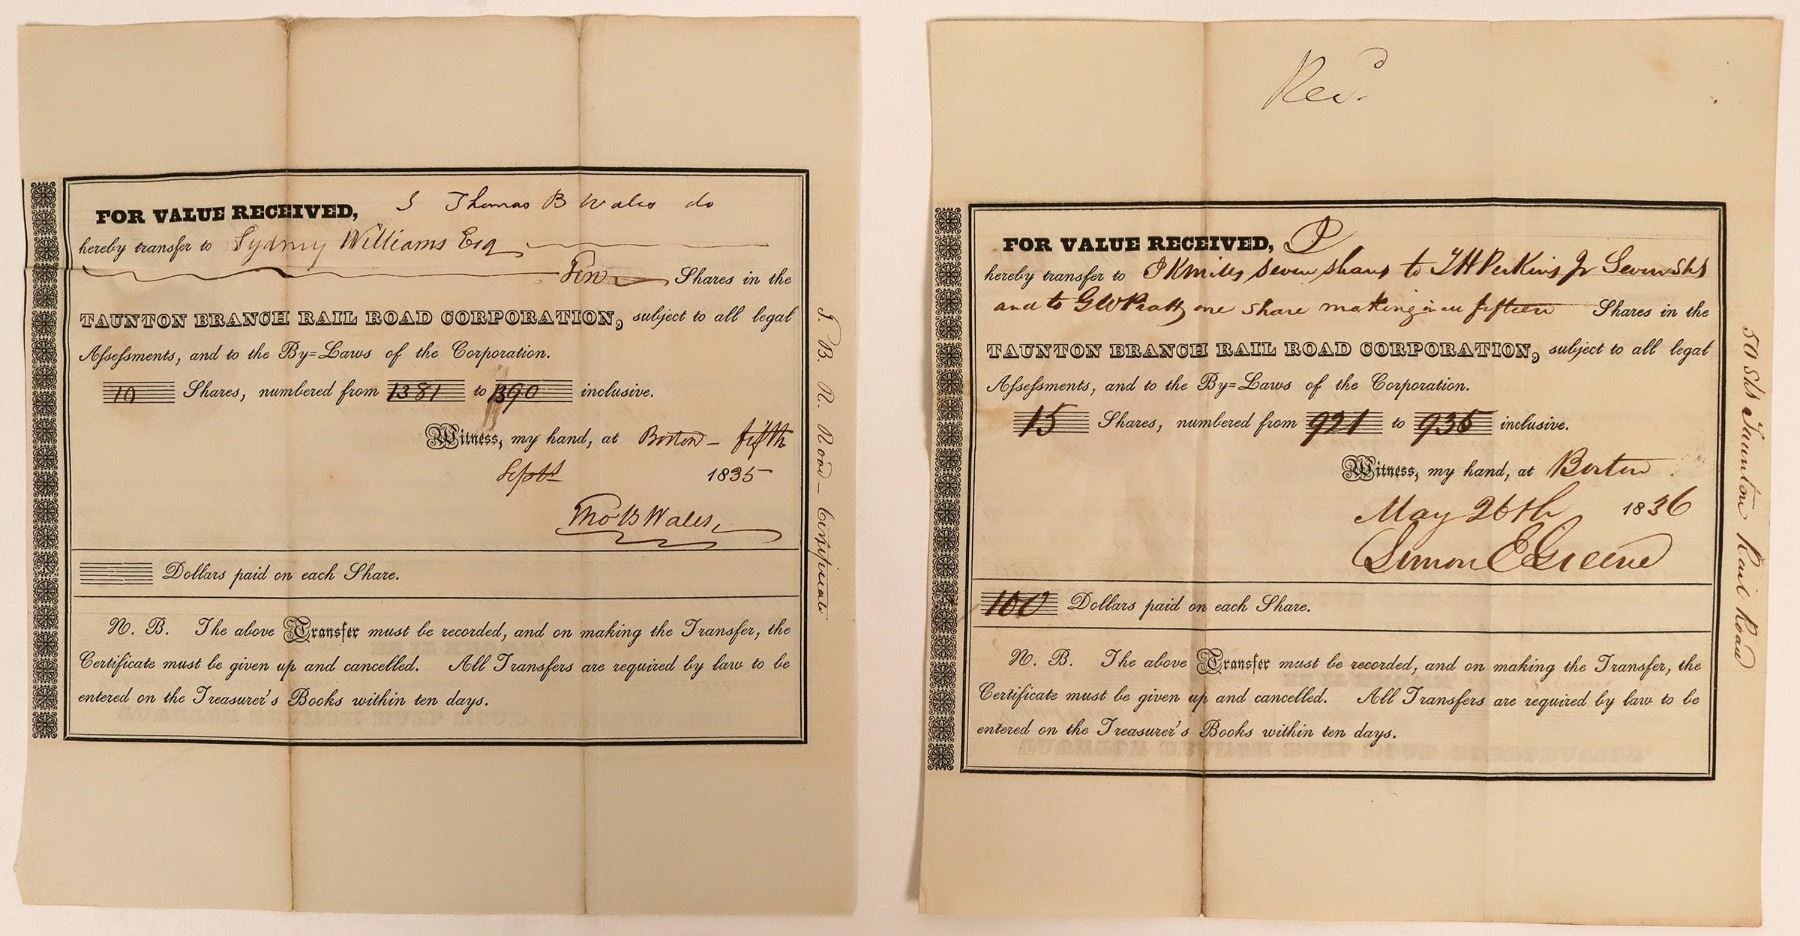 FOR VALUE RECEIVED, I Thomas B Wales do
hereby transfer to Sydney Williams Esq
Ten Shares in the
TAUNTON BRANCH RAIL ROAD CORPORATION, subject to all legal
Assessments, and to the By=Laws of the Corporation.
10 Shares, numbered from 1381 to 1390 inclusive.
Witness, my hand, at Boston - fifth
Sept 1835
Tho B Wales
Dollars paid on each Share.
N. B. The above Transfer must be recorded, and on making the Transfer, the
Certificate must be given up and cancelled. All Transfers are required by law to be
entered on the Treasurer's Books within ten days.
T. B. R. Road - Certificate
Recd.
FOR VALUE RECEIVED, I
hereby transfer to I K Mills seven shares to T H Perkins Jr Seven Shs
and to G W Pratt one share making in all fifteen Shares in the
TAUNTON BRANCH RAIL ROAD CORPORATION, subject to all legal
Assessments, and to the By=Laws of the Corporation.
15 Shares, numbered from 921 to 935 inclusive.
Witness, my hand, at Boston
May 26th 1836
Simon E Greene
100 Dollars paid on each Share.
N. B. The above Transfer must be recorded, and on making the Transfer, the
Certificate must be given up and cancelled. All Transfers are required by law to be
entered on the Treasurer's Books within ten days.
50 Shs Taunton Rail Road